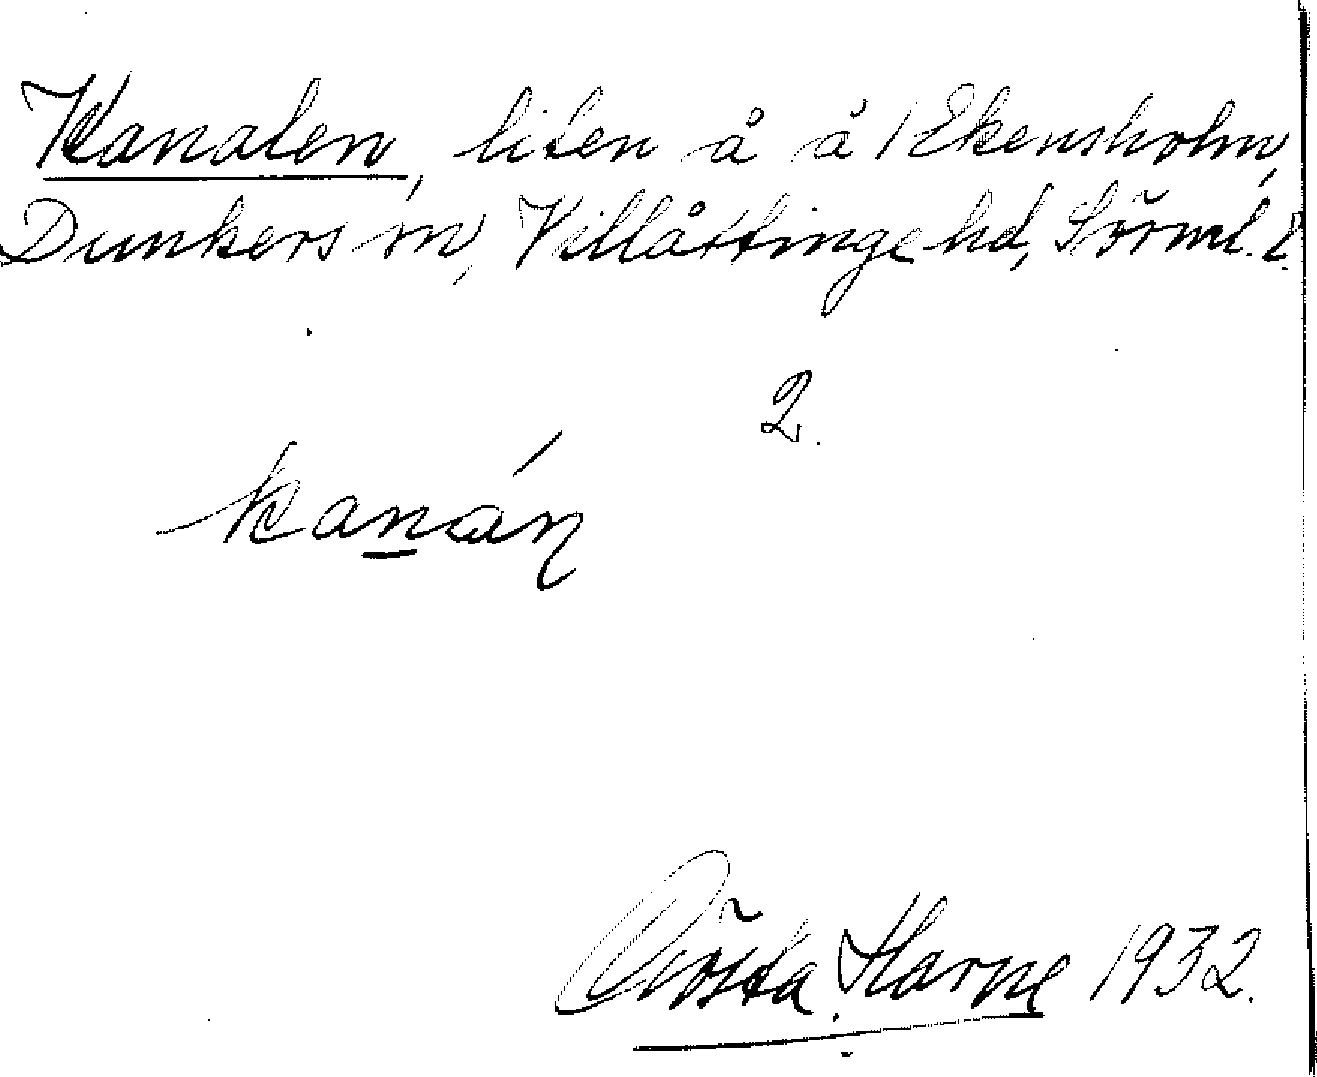 Kanalen, liten å å Ekensholm,
Dunkers sn, Villåttinge hd, Sörml. l.
2.
kanáṇ
Gösta Harne 1932.